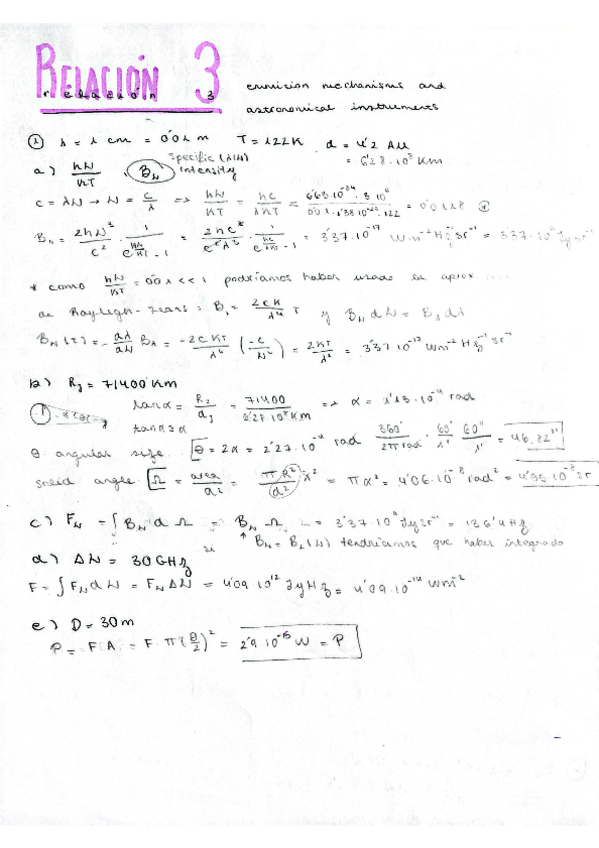 RELACIÓN 3
relación 3
emission mechanisms and
astronomical instruments
① λ = 1 cm = 0'01 m T = 122K d = 4'2 AU
= 6'28·10⁸ Km
a) hν/KT , Bν Specific (λ/ν) intensity
c = λν → ν = c/λ ⇒ hν/KT = hc/λKT = 6'63·10⁻³⁴·3·10⁸/0'01·1'38·10⁻²³·122 = 0'0118
Bν = 2hν³/c² · 1/(e^(hν/KT) - 1) = 2hc/λ³ · 1/(e^(hc/λKT) - 1) = 3'37·10⁻¹⁷ Wm⁻²Hz⁻¹sr⁻¹ = 3'37·10⁹ Jy sr⁻¹
* como hν/KT = 0'01 << 1 podríamos haber usado la aprox
de Rayleigh-Jeans: Bλ = 2cK/λ⁴ T y Bν dν = Bλ dλ
Bν(T) = - dλ/dν Bλ = -2cKT/λ⁴ (-c/ν²) = 2KT/λ² = 3'37·10⁻¹⁷ Wm⁻² Hz⁻¹ sr⁻¹
b) RJ = 71400 Km
tan α = RJ/dJ = 71400/6'28·10⁸Km ⇒ α = 1'13·10⁻⁴ rad
tan α ≈ α
θ angular size θ = 2α = 2'27·10⁻⁴ rad 360°/2π rad · 60'/1° · 60"/1' = 46'82"
solid angle Ω = area/d² = πR²/d² = πα² = 4'06·10⁻⁸ rad² = sr
c) Fν = ∫ Bν dΩ = Bν Ω = 3'37·10⁹ Jy sr⁻¹ =
si Bν = Bν(Ω) tendríamos que haber integrado
d) Δν = 30 GHz
F = ∫ Fν dν = Fν Δν = 4'09·10¹² Jy Hz = 4'09·10⁻¹⁴ Wm⁻²
e) D = 30 m
P = F A = F · π (D/2)² = 2'9·10⁻¹¹ W = P